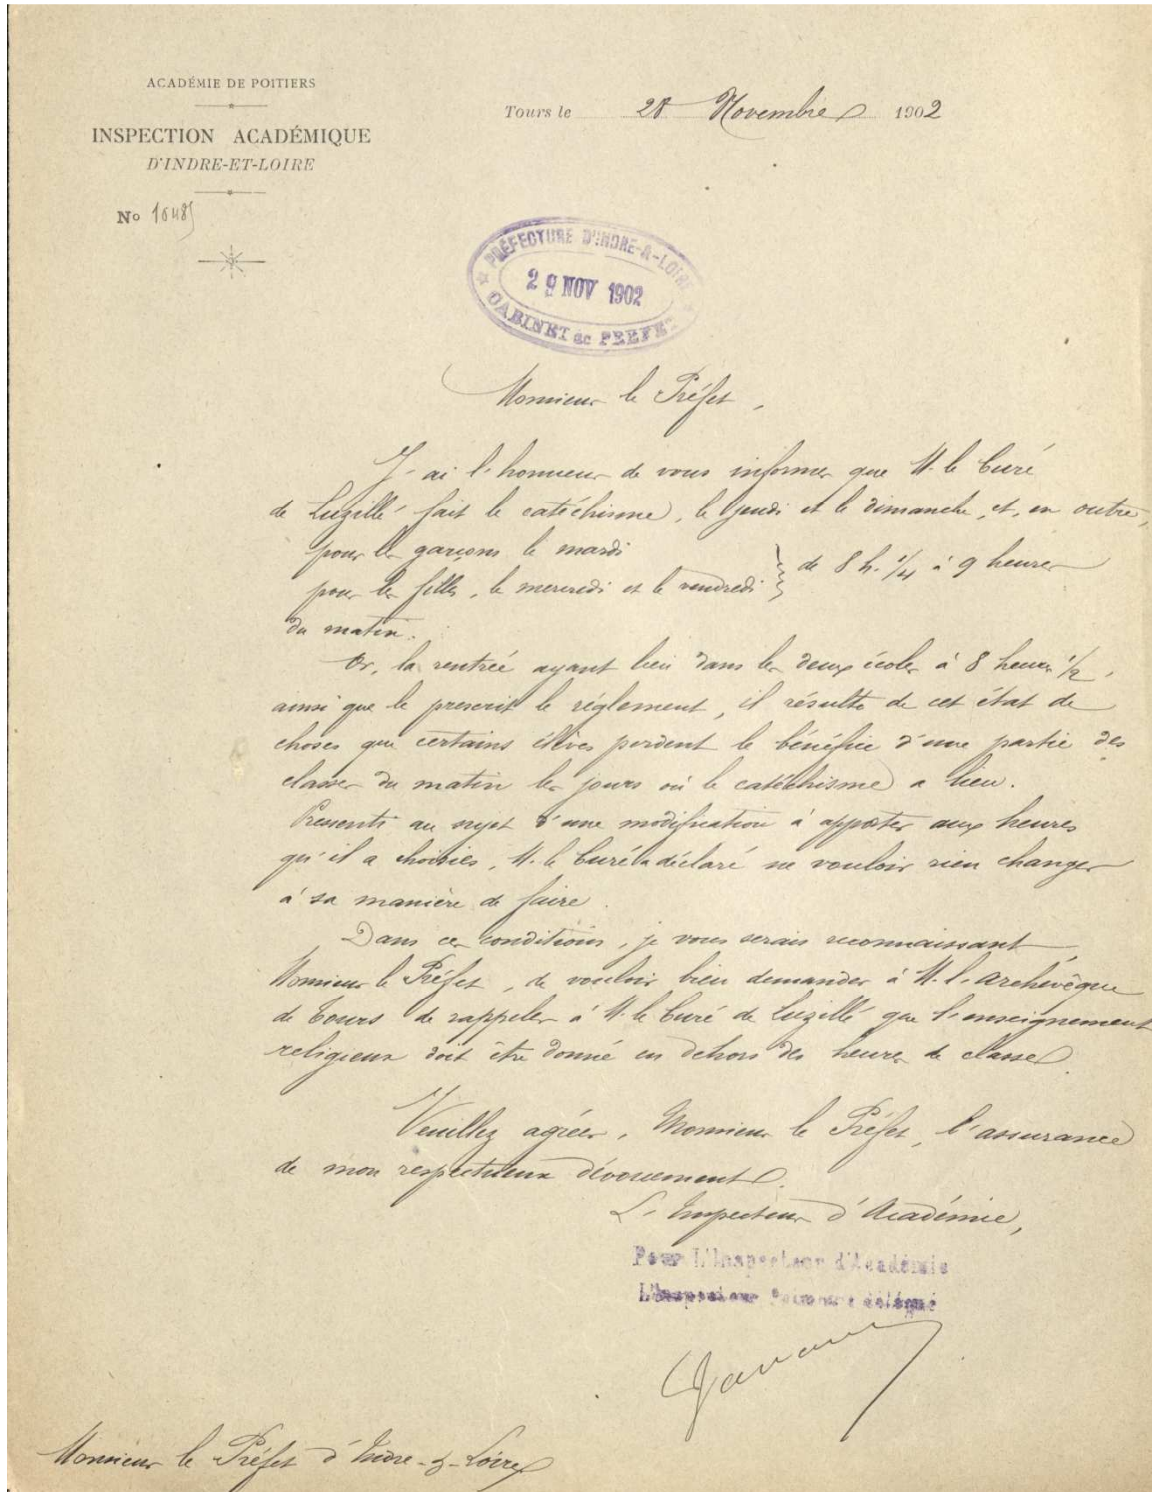 ACADÉMIE DE POITIERS
INSPECTION ACADÉMIQUE
D'INDRE-ET-LOIRE
No
Tours le 28 Novembre 1902
PRÉFECTURE D'INDRE-&-LOIRE
29 NOV 1902
CABINET de PREFET
Monsieur le Préfet,
J'ai l'honneur de vous informer que M. le Curé
de Luzillé fait le catéchisme, le jeudi et le dimanche, et, en outre,
pour les garçons le mardi
pour les filles, le mercredi et le vendredi } de 8 h. 1/4 à 9 heures
du matin.
Or, la rentrée ayant lieu dans les deux écoles à 8 heures 1/2,
ainsi que le prescrit le règlement, il résulte de cet état de
choses que certains élèves perdent le bénéfice d'une partie des
classes du matin les jours où le catéchisme a lieu.
Pressenti au sujet d'une modification à apporter aux heures
qu'il a choisies, M. le Curé a déclaré ne vouloir rien changer
à sa manière de faire.
Dans ces conditions, je vous serais reconnaissant,
Monsieur le Préfet, de vouloir bien demander à M. l'archevêque
de Tours de rappeler à M. le Curé de Luzillé que l'enseignement
religieux doit être donné en dehors des heures de classe.
Veuillez agréer, Monsieur le Préfet, l'assurance
de mon respectueux dévouement.
L'Inspecteur d'Académie,
Pour L'Inspecteur d'Académie
L'Inspecteur délégué
Monsieur le Préfet d'Indre-&-Loire